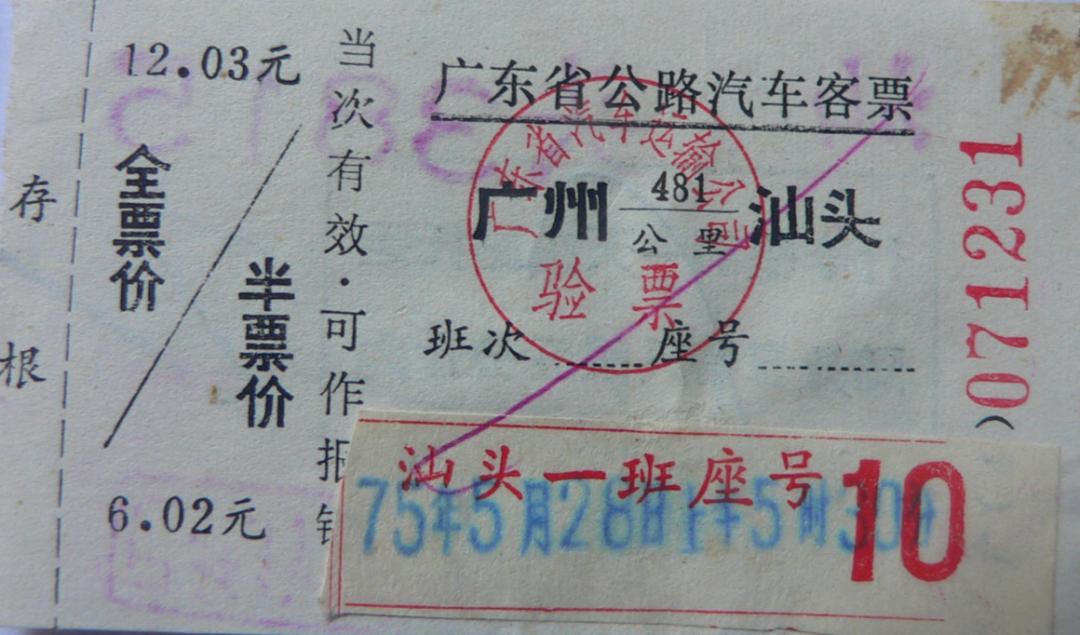 存根
12.03元
全票价
半票价
6.02元
当次有效·可作报
广东省公路汽车客票
广东省汽车运输公司
验票
广州 481公里 汕头
班次 座号
071231
汕头一班座号 10
75年5月28日上午5时30分